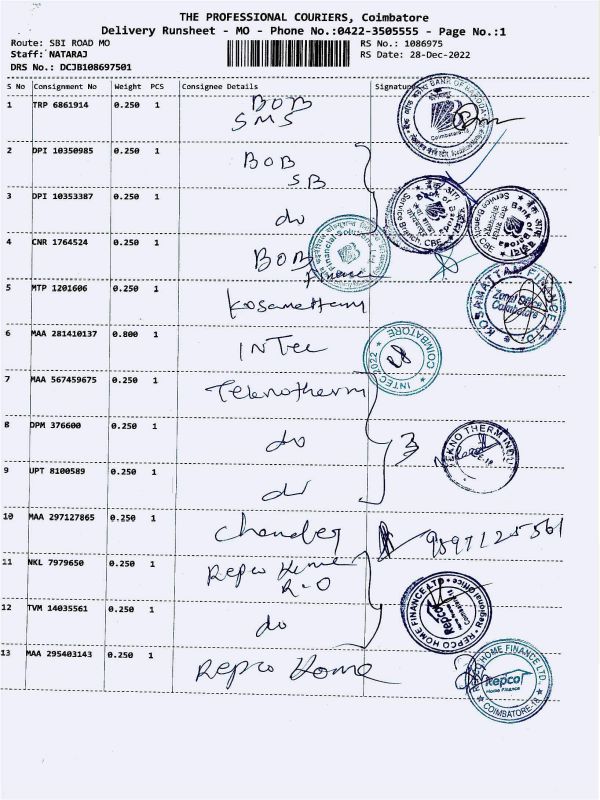 THE PROFESSIONAL COURIERS, Coimbatore
Delivery Runsheet - MO - Phone No.:0422-3505555 - Page No.:1
Route: SBI ROAD MO RS No.: 1086975
Staff: NATARAJ RS Date: 28-Dec-2022
DRS No.: DCJB108697501
S No Consignment No Weight PCS Consignee Details Signature
1 TRP 6861914 0.250 1 BOB
SMS
2 DPI 10350985 0.250 1 BOB
SB
3 DPI 10353387 0.250 1 do
4 CNR 1764524 0.250 1 BOB
Finance
5 MTP 1201606 0.250 1 Kosamattam
6 MAA 281410137 0.800 1 INTEC
7 MAA 567459675 0.250 1 Teknotherm
8 DPM 376600 0.250 1 do 3
9 UPT 8100589 0.250 1 do
10 MAA 297127865 0.250 1 9597125561
11 NKL 7979650 0.250 1 Repco Home
R.O
12 TVM 14035561 0.250 1 do
13 MAA 295403143 0.250 1 Repco Home
BANK OF BARODA
Coimbatore
Bank of Baroda
Service Branch, CBE
Bank of Baroda
Service Branch
CBE
Financial Solutions
KOSAMATTAM FINANCE LTD.
Zonal Office
Coimbatore
COIMBATORE
INTEC
TEKNO THERM IND
REPCO HOME FINANCE LTD
Regional Office
Repco
REPCO HOME FINANCE LTD.
Repco
Home Finance
COIMBATORE-18